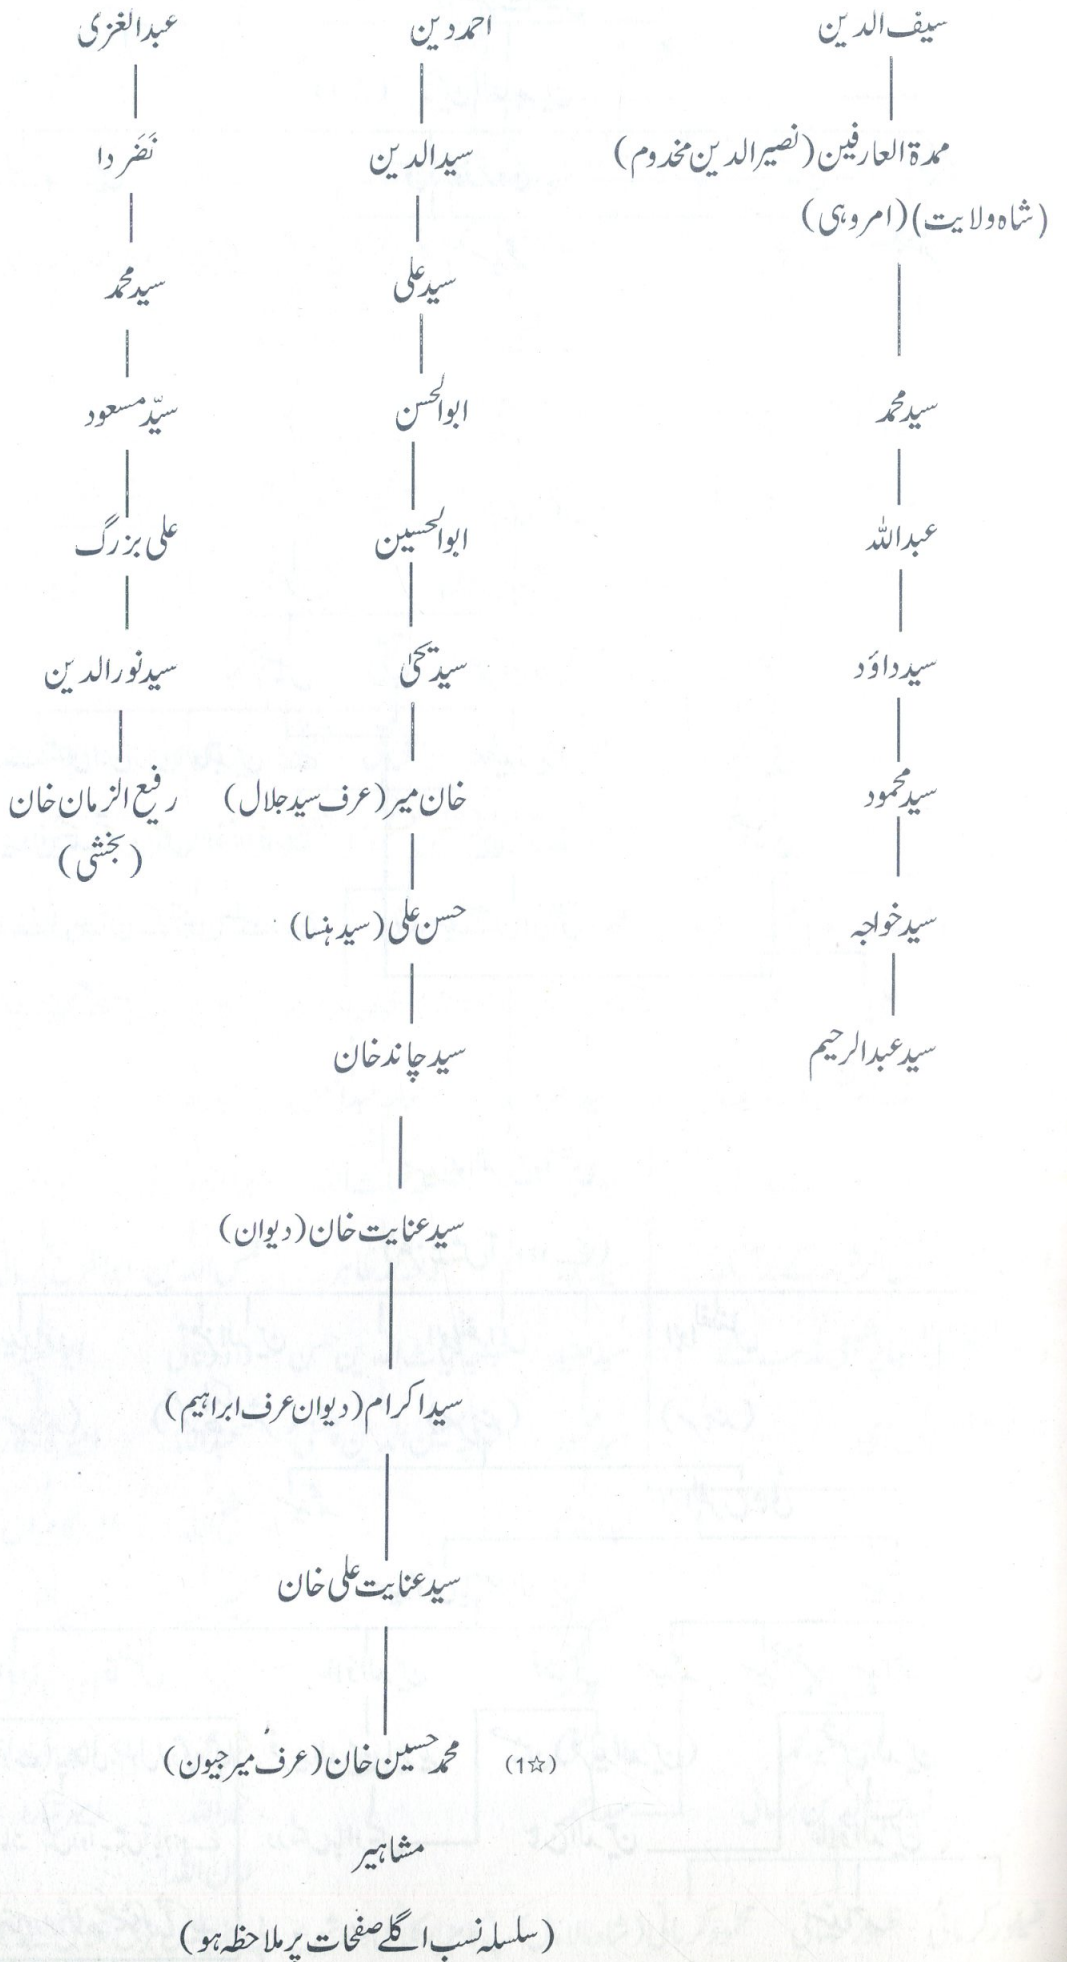 سیف الدین
ممدۃ العارفین (نصیر الدین مخدوم)
(شاہ ولایت) (امروہی)
سید محمد
عبداللہ
سید داؤد
سید محمود
سید خواجہ
سید عبدالرحیم
احمد دین
سید الدین
سید علی
ابوالحسن
ابوالحسین
سید یحیٰ
خان میر (عرف سید جلال)
حسن علی (سید ہنسا)
سید چاند خان
سید عنایت خان (دیوان)
سید اکرام (دیوان عرف ابراہیم)
سید عنایت علی خان
(1☆) محمد حسین خان (عرف میر جیون)
عبدالغزی
نَضَر دا
سید محمد
سیّد مسعود
علی بزرگ
سید نور الدین
رفیع الزمان خان
(بخشی)
مشاہیر
(سلسلہ نسب اگلے صفحات پر ملاحظہ ہو)